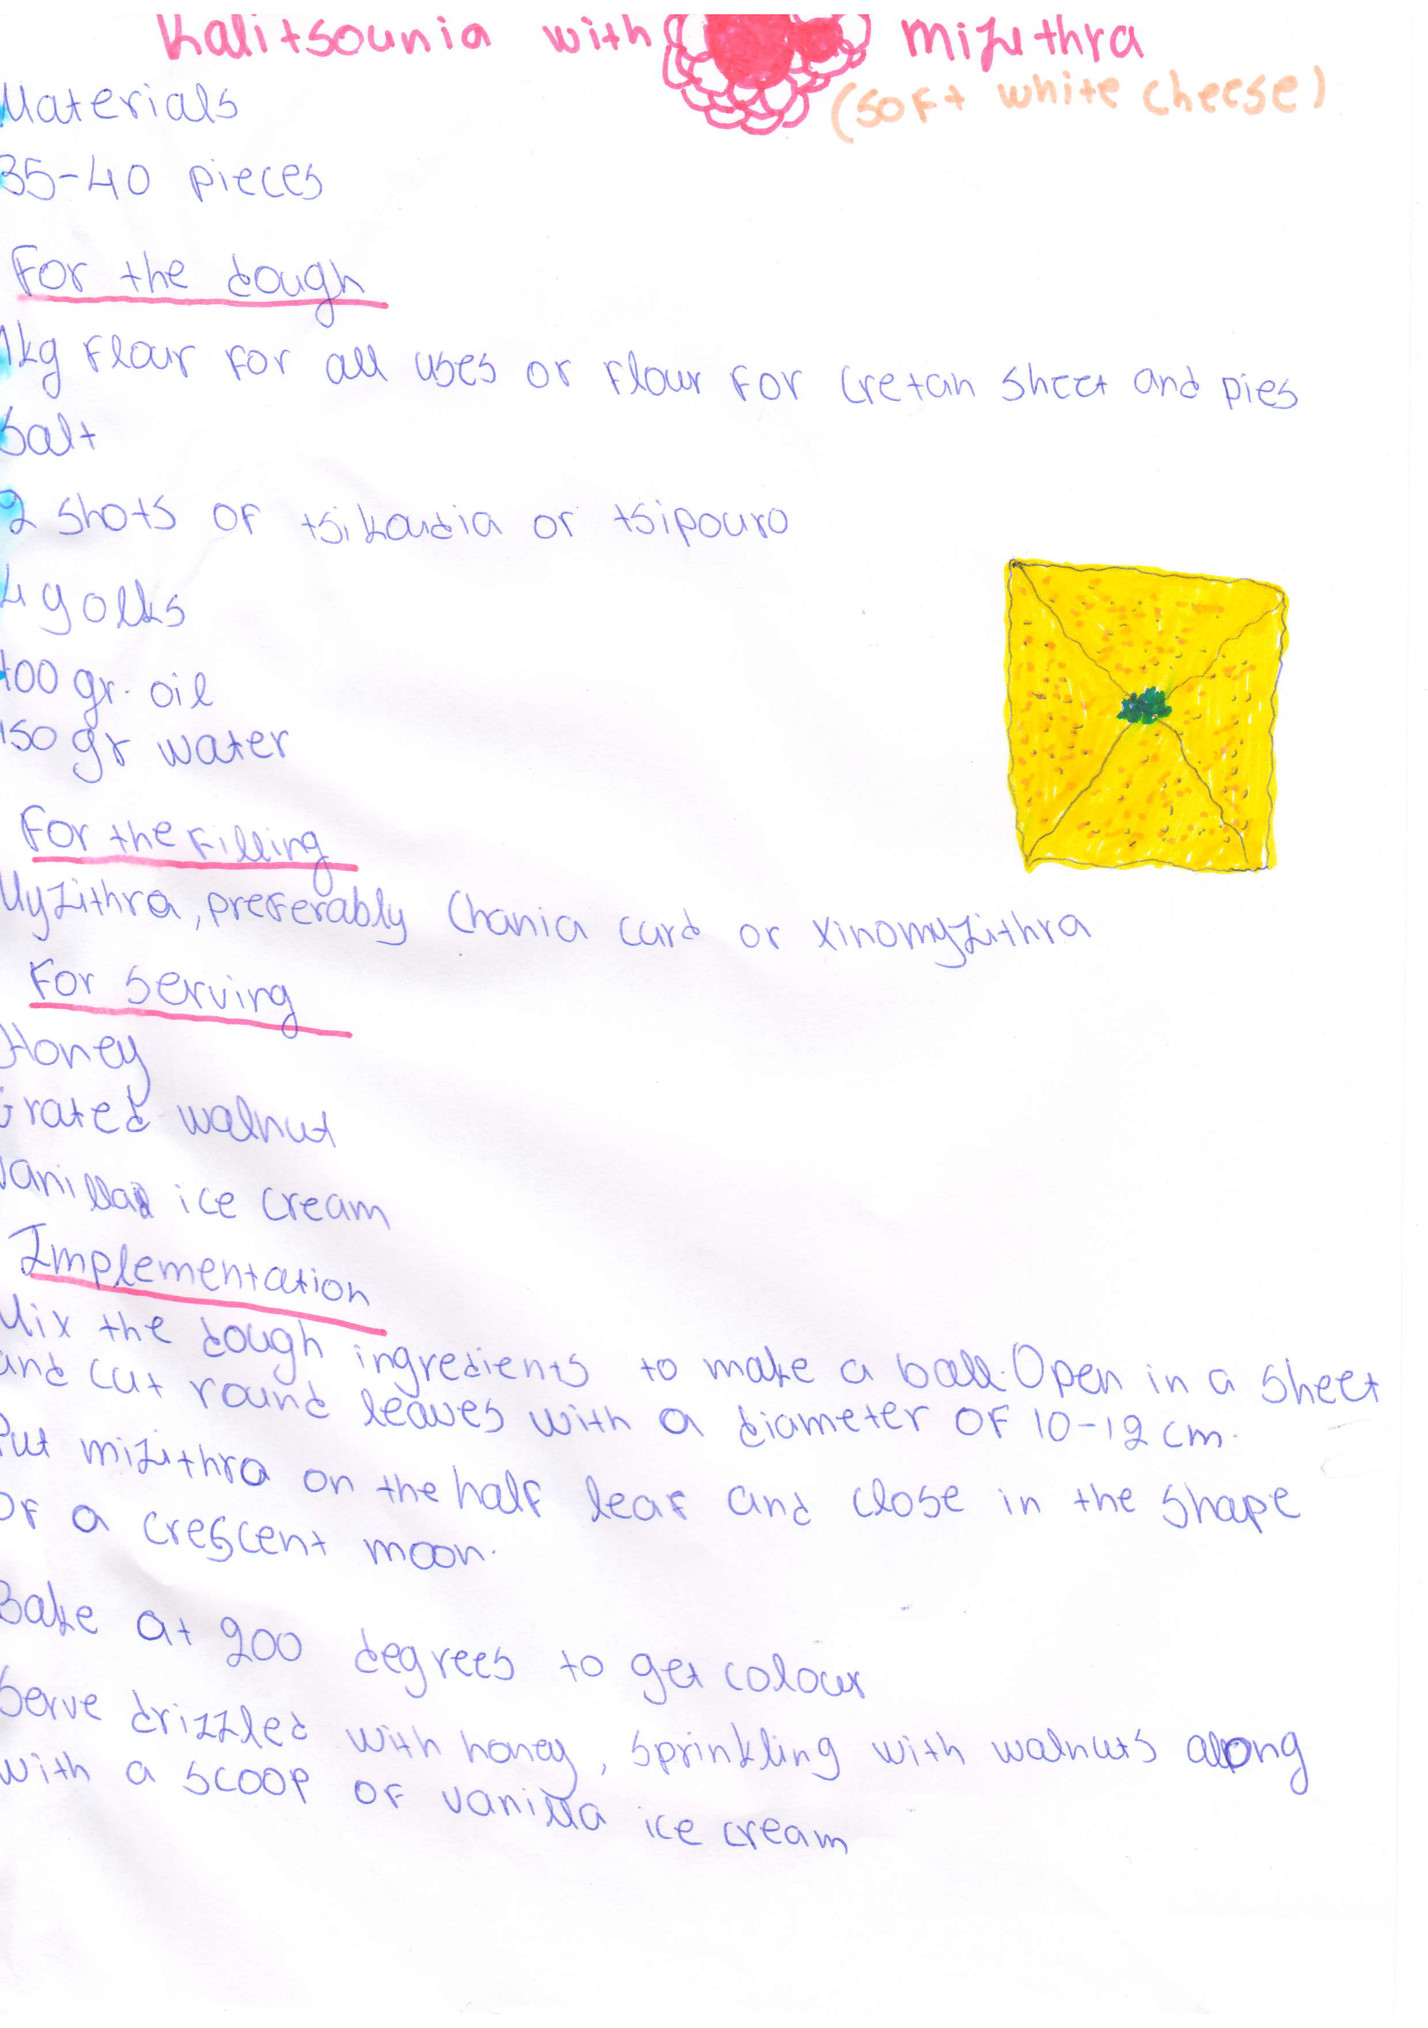 Kalitsounia with mizithra
(soft white cheese)
Materials
35-40 pieces
For the dough
1kg flour for all uses or flour for Cretan sheet and pies
Salt
2 shots of tsikoudia or tsipouro
4 yolks
100 gr. oil
150 gr water
For the filling
Myzithra, preferably Chania curd or xinomyzithra
For serving
Honey
Grated walnut
Vanilla ice cream
Implementation
Mix the dough ingredients to make a ball. Open in a sheet
and cut round leaves with a diameter of 10-12 cm.
Put mizithra on the half leaf and close in the shape
of a crescent moon.
Bake at 200 degrees to get colour
Serve drizzled with honey, sprinkling with walnuts along
with a scoop of vanilla ice cream